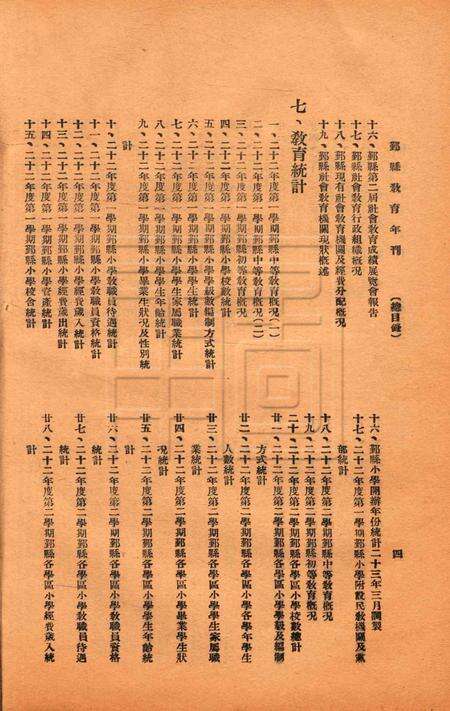 鄞縣教育年刊 （總目錄） 四
十六、鄞縣第二屆社會教育成績展覽會報告
十七、鄞縣社會教育行政組織概況
十八、鄞縣現有社會教育機關及經費分配概況
十九、鄞縣社會教育機關現狀概述
七、教育統計
一、二十一年度第一學期鄞縣中等教育概況（一）
二、二十一年度第一學期鄞縣中等教育概況（二）
三、二十二年度第一學期鄞縣初等教育概況
四、二十二年度第一學期鄞縣小學校數統計
五、二十二年度第一學期鄞縣小學學級數編制方式統計
六、二十二年度第一學期鄞縣小學學生統計
七、二十二年度第一學期鄞縣小學學生家屬職業統計
八、二十二年度第一學期鄞縣小學學生年齡統計
九、二十二年度第一學期鄞縣小學畢業生狀况及性別統
計
十、二十二年度第一學期鄞縣小學教職員待遇統計
十一、二十二年度第一學期鄞縣小學教職員資格統計
十二、二十二年度第一學期鄞縣小學經費歲入統計
十三、二十二年度第一學期鄞縣小學經費歲出統計
十四、二十二年度第一學期鄞縣小學資產統計
十五、二十二年度第一學期鄞縣小學校舍統計
十六、鄞縣小學開辦年份統計二十三年三月調製
十七、二十二年度第一學期鄞縣小學附設民教機關及黨
部統計
十八、二十二年度第二學期鄞縣中等教育概況
十九、二十二年度第二學期鄞縣初等教育概況
二十、二十二年度第二學期鄞縣各學區小學校數總計
廿一、二十二年度第二學期鄞縣各學區小學學級及編制
方式統計
廿二、二十二年度第二學期鄞縣各學區小學各學年學生
人數統計
廿三、二十二年度第二學期鄞縣各學區小學學生家屬職
業統計
廿四、二十二年度第二學期鄞縣各學區小學畢業學生狀
况統計
廿五、二十二年度第二學期鄞縣各學區小學學生年齡統
計
廿六、二十二年度第二學期鄞縣各學區小學教職員資格
統計
廿七、二十二年度第二學期鄞縣各學區小學教職員待遇
統計
廿八、二十二年度第二學期鄞縣各學區小學經費歲入統
計